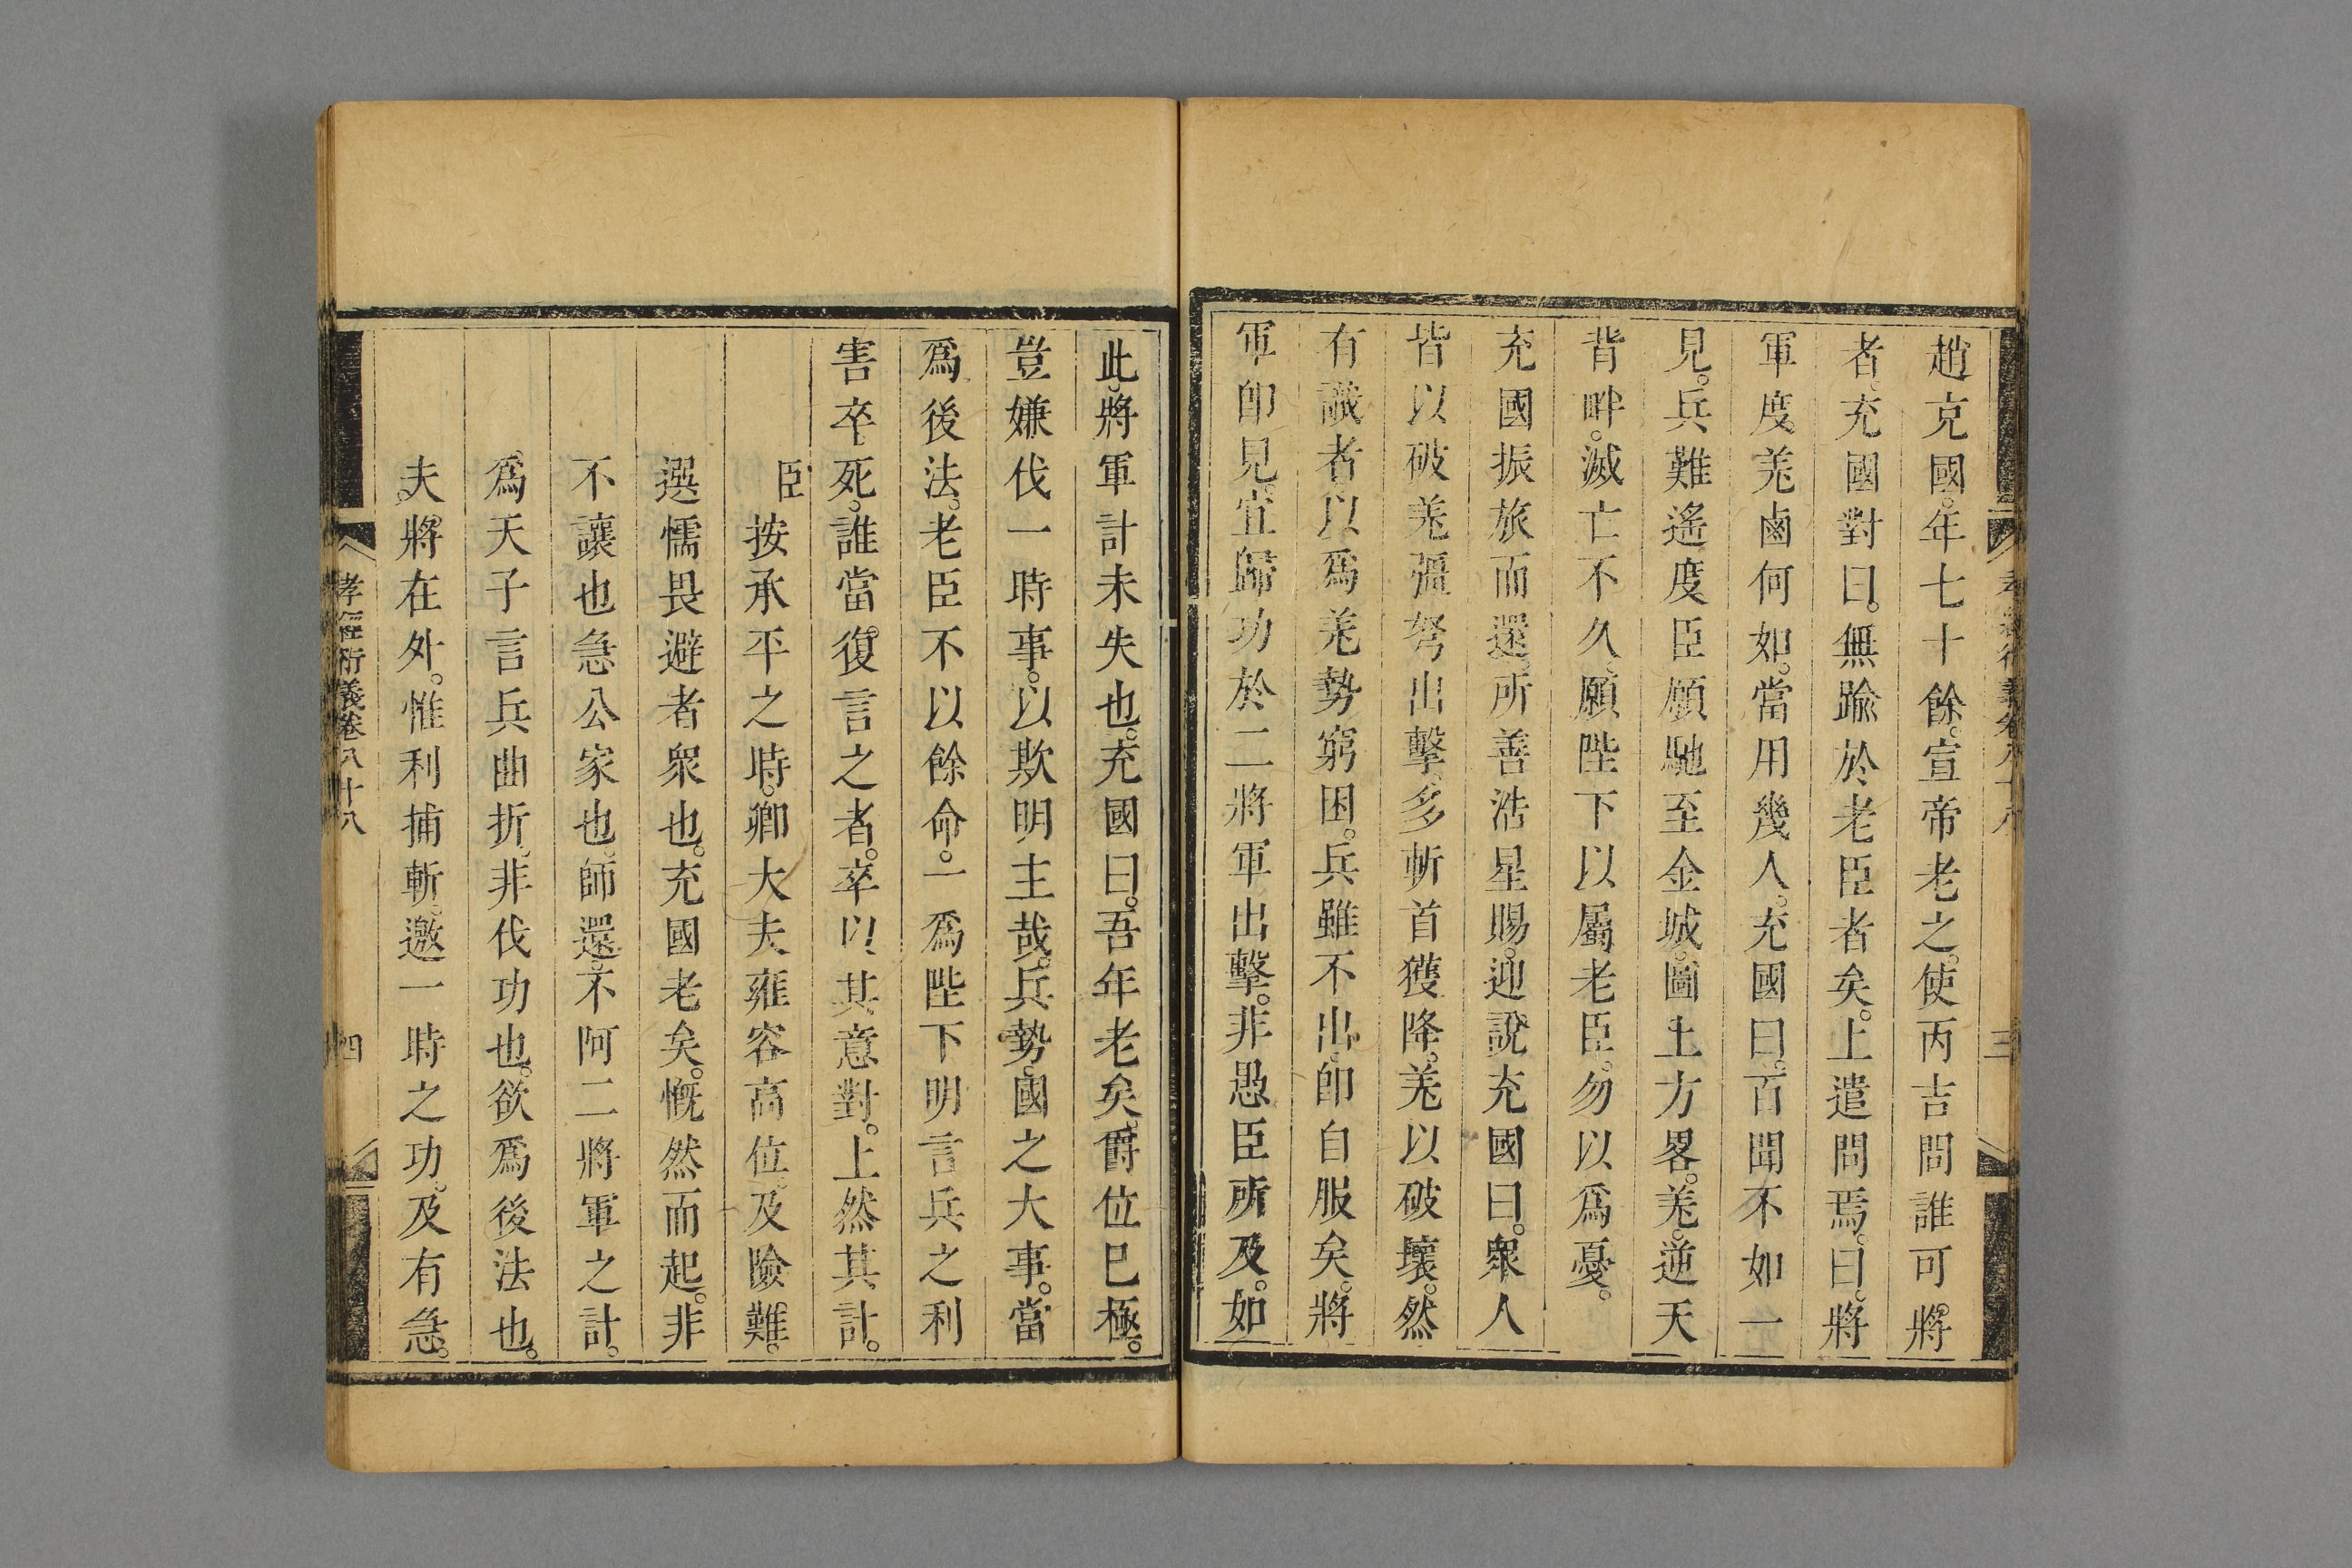 趙充國。年七十餘。宣帝老之。使丙吉問誰可。將
者。充國對曰。無踰於老臣者矣。上遣問焉。曰。將
軍度。羌鹵何如。當用幾人。充國曰。百聞不如一
見。兵難遙度。臣願馳至金城。圖上方畧。羌。逆天
背畔。滅亡不久。願陛下以屬老臣。勿以爲憂。
充國振旅而還。所善浩星賜。迎說充國曰。衆人
皆以破羌彊弩出擊。多斬首獲降。羌以破壞。然
有識者。以爲羌勢窮困。兵雖不出。卽自服矣。將
軍卽見。宜歸功於二將軍出擊。非愚臣所及。如
此。將軍計未失也。充國曰。吾年老矣。爵位已極。
豈嫌伐一時事。以欺明主哉。兵勢。國之大事。當
爲後法。老臣不以餘命。一爲陛下明言兵之利
害卒死。誰當。復言之者。卒以其意對。上然其計。
臣按承平之時。卿大夫雍容高位。及險難。
選懦畏避者衆也。充國老矣。慨然而起。非
不讓也。急公家也。師還。不阿二將軍之計。
爲天子言兵曲折。非伐功也。欲爲後法也。
夫。將在外。惟利捕斬。邀一時之功。及有急。
孝經衍義卷八十八
四